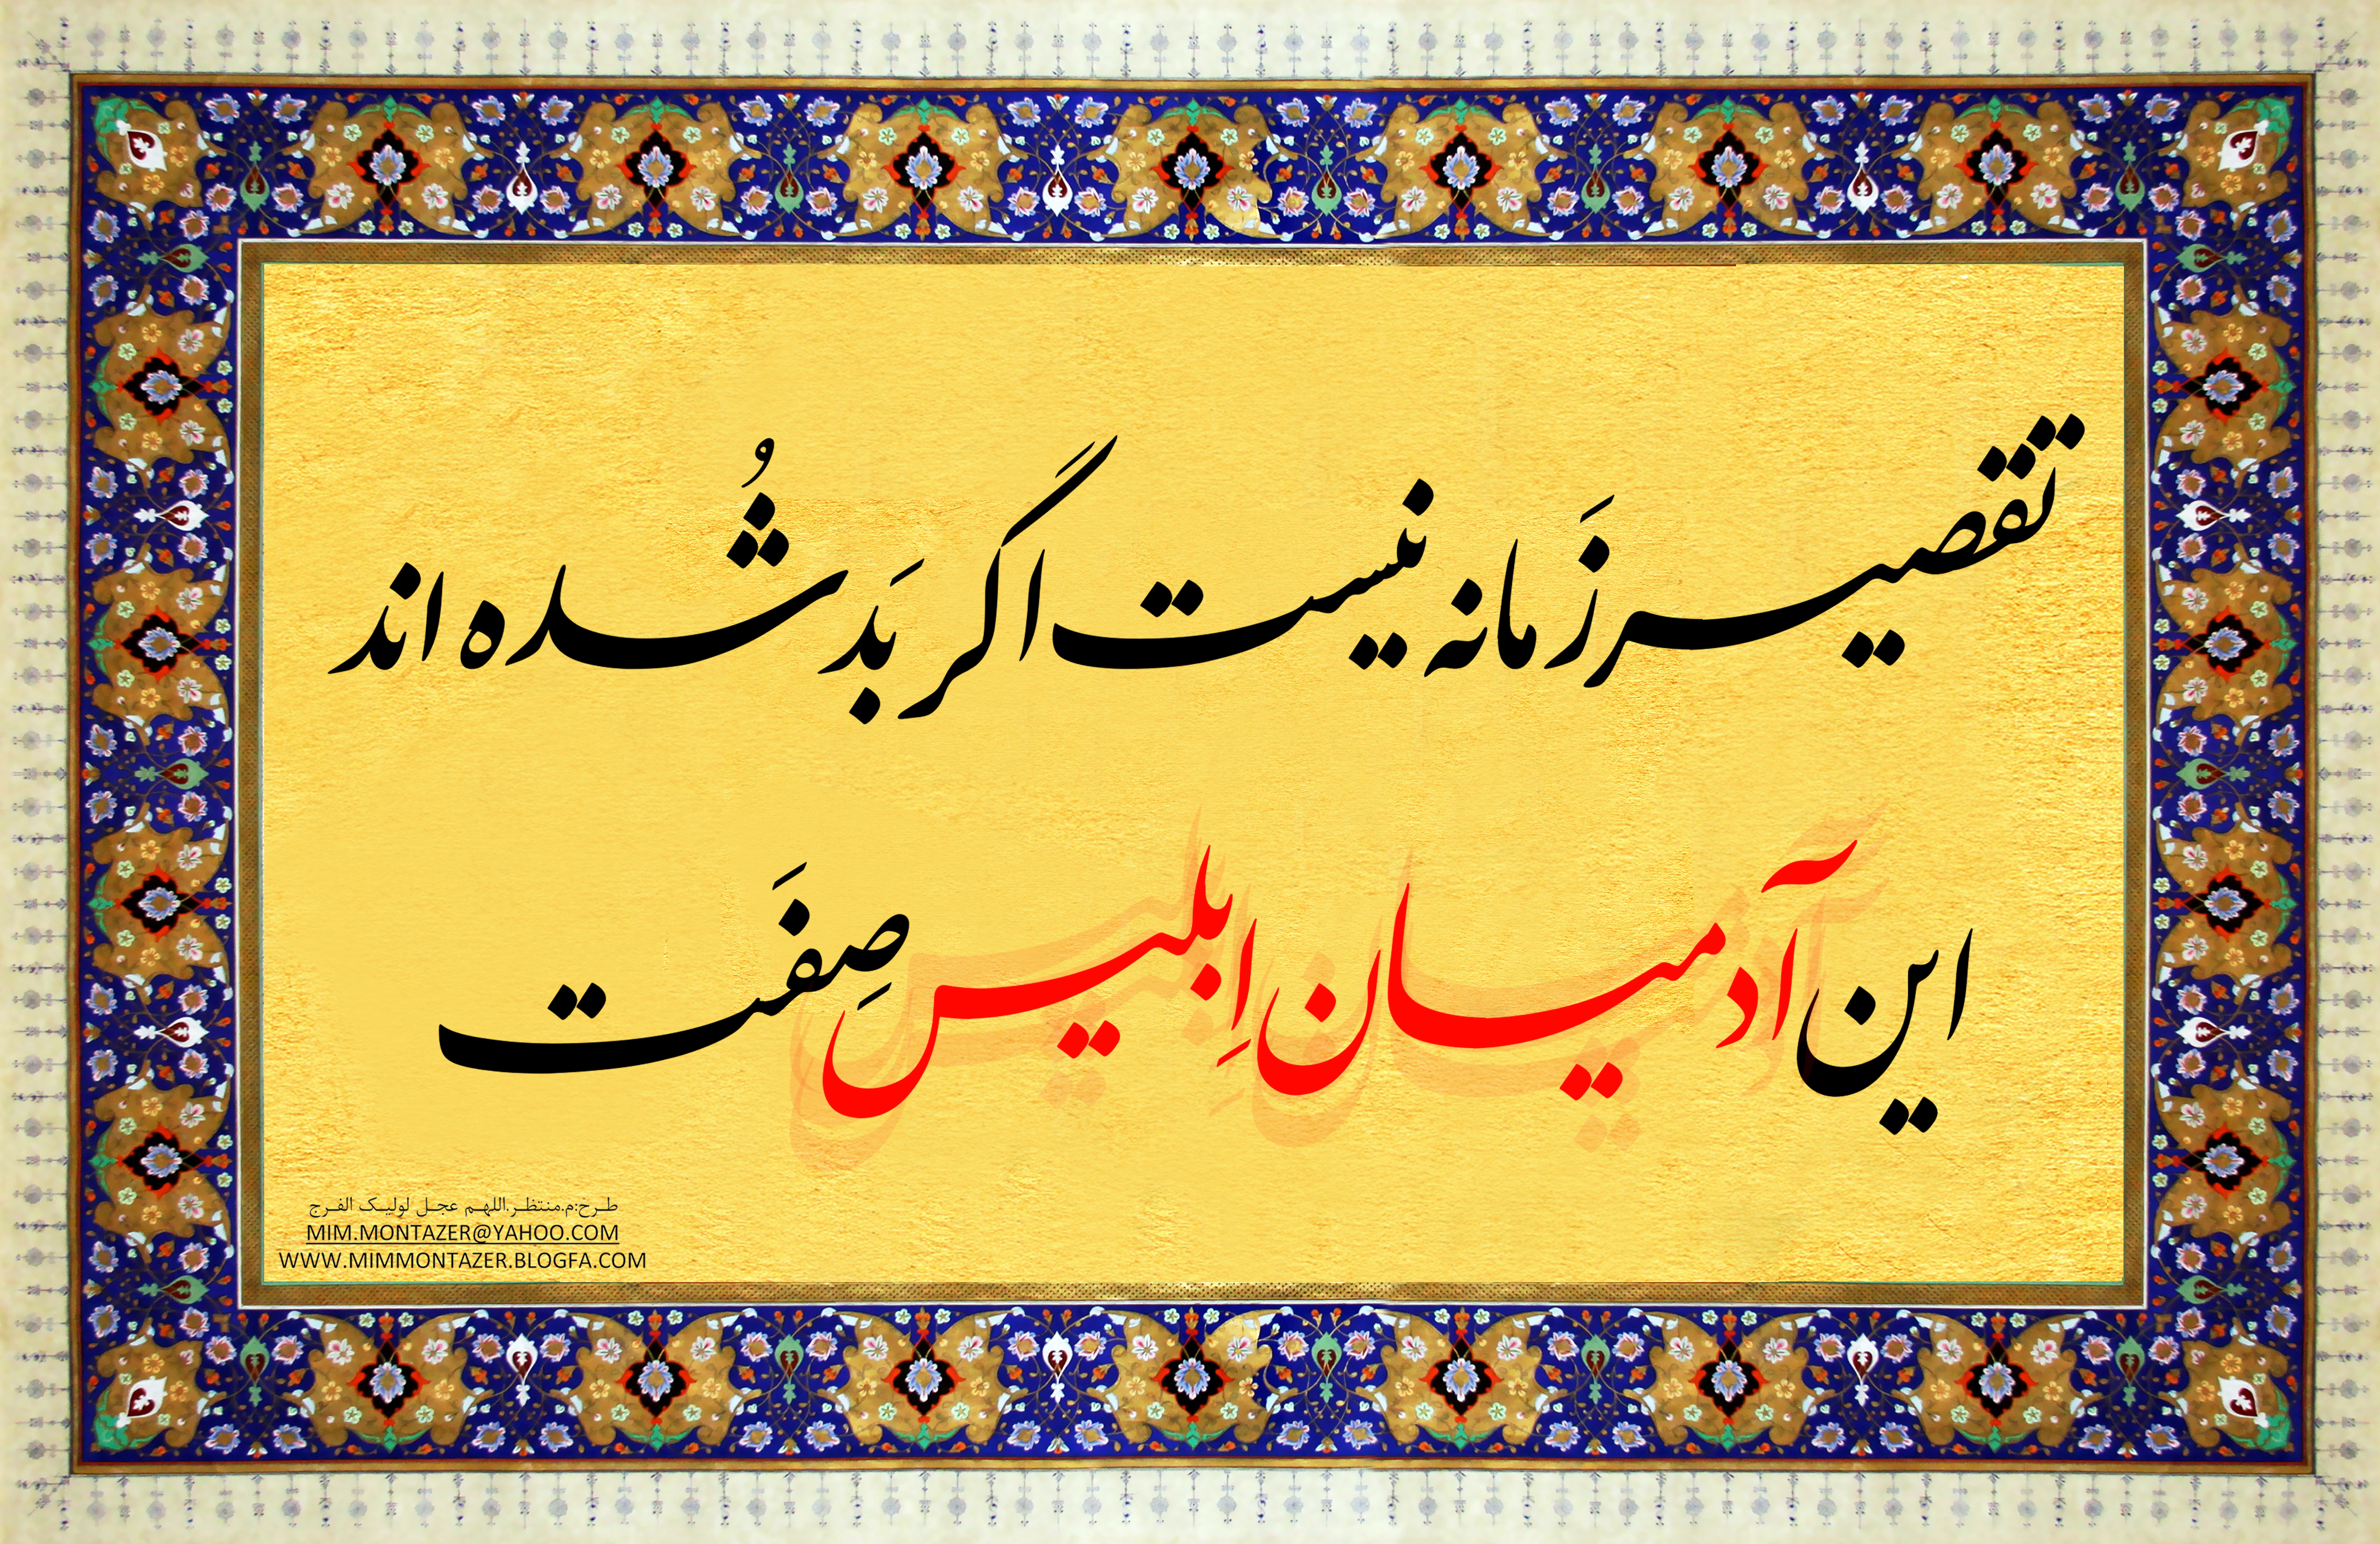 تقصیر زَمانه نیست اگر بَد شُده اند
این آدمیان اِبلیس صِفَت
طرح:م.منتظر.اللهم عجل لولیک الفرج
MIM.MONTAZER@YAHOO.COM
WWW.MIMMONTAZER.BLOGFA.COM